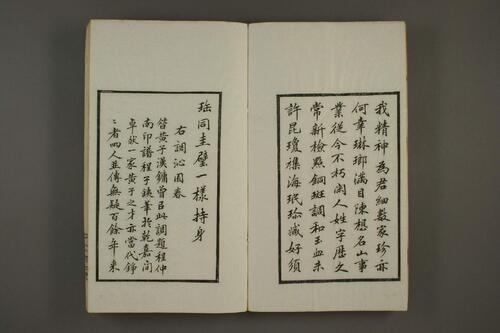 我精神為君細數家珍亦
何幸琳瑯滿目陳想名山事
業從今不朽閑人姓字歷久
常新檢點銅斑調和玉血未
許昆瓊襍海珉珍藏好須
珤同圭璧一樣持身
右調沁園春
昔黃子漢鏞曾𠯁此調題程仲
南印譜程子鋏華於乾嘉間
卓然一家黃子之才亦當代錚
〻者四人並傳無疑百餘年來